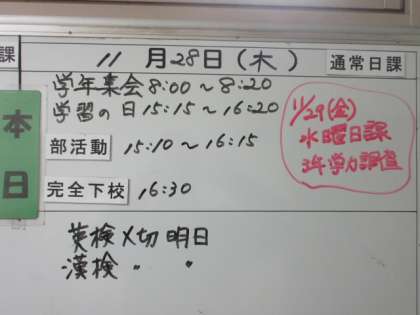 課
11月28日(木)
通常日課
本日
学年集会 8:00～8:20
学習の日 15:15～16:20
部活動 15:10～16:15
完全下校 16:30
11/29(金)
水曜日課
3年学力調査
英検〆切 明日
漢検 〃 〃